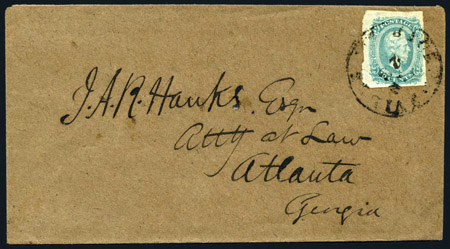 J.A.R. Hanks. Esqr
Atty at Law
Atlanta
Georgia